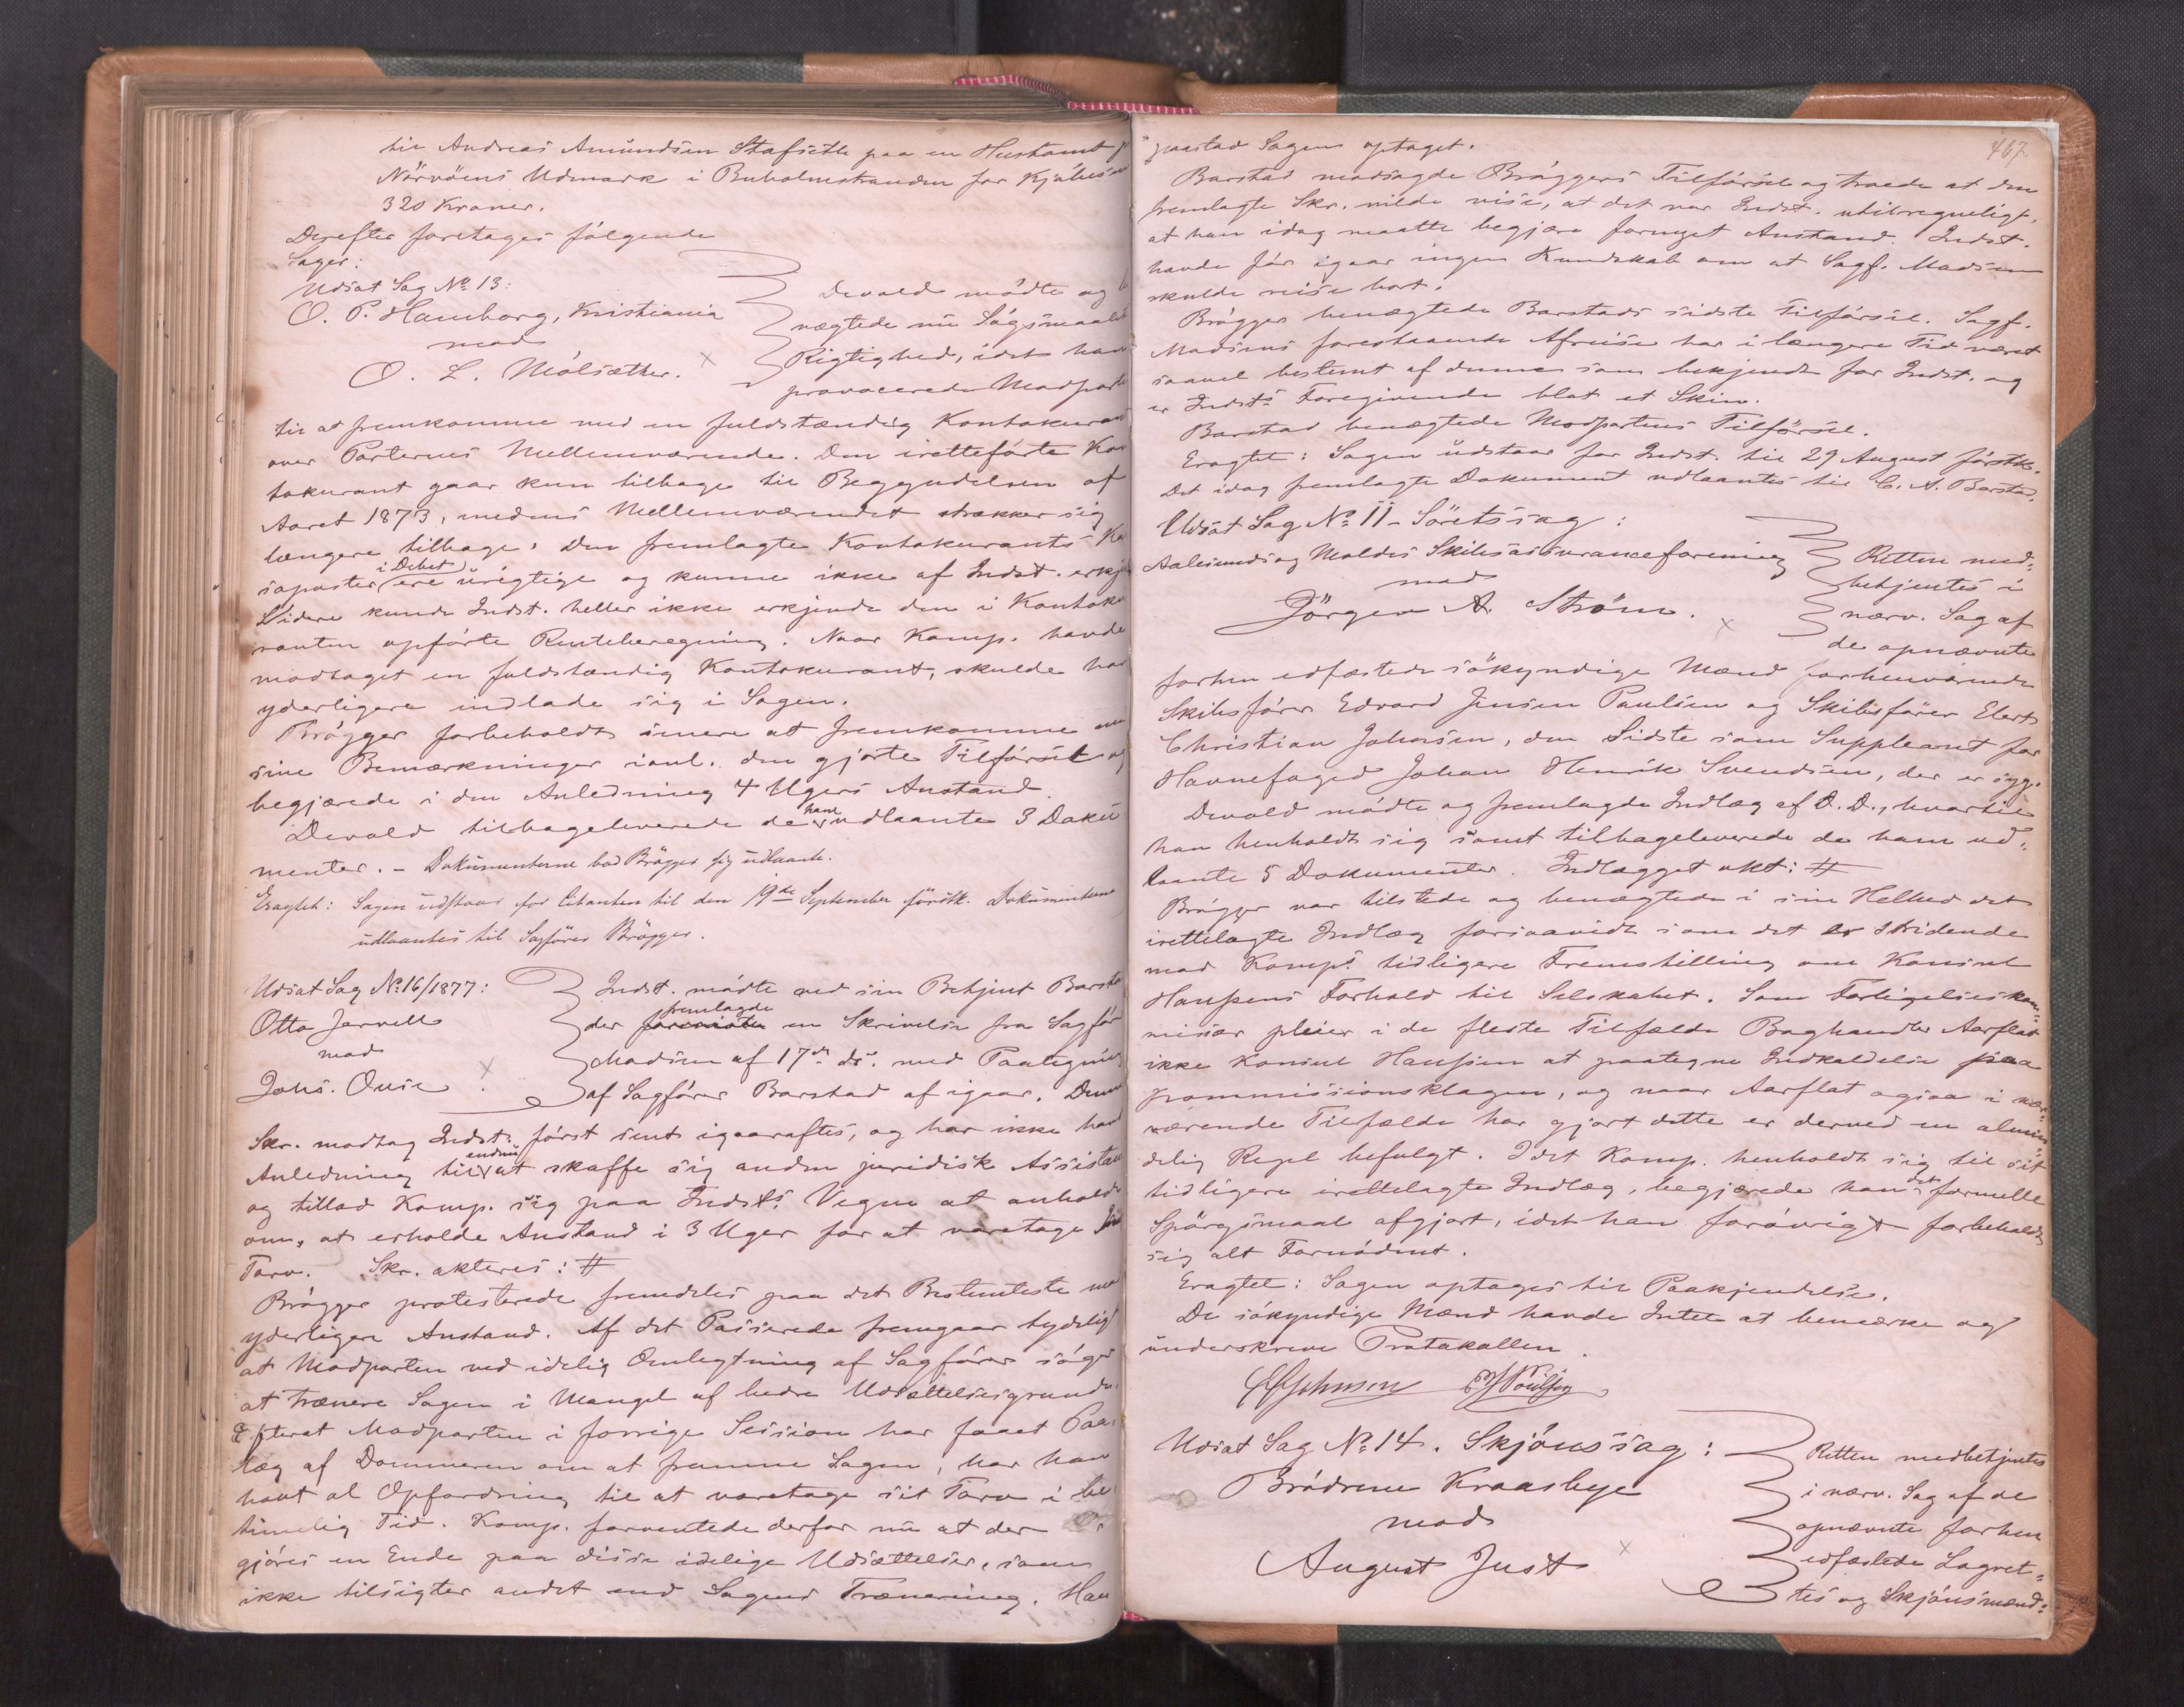 til Andreas Amundsen Stafseth paa en Hustomt
Nörvöens Udmark i Buholmstranden for Kjöbesum
320 Kroner.
Derefter foretoges fölgende
Sager:
Udsat Sag No 13:
O. P. Hamborg, Kristiania
mod
O. L. Molsæther.
Devold mödte og be
nægtede nu Sögsmaalets
Rigtighed, idet han
provocerede Modparten
til at fremkomme med en fuldstændig Kontokurant
over Parternes Mellemværende. Den iretteförte Kon
tokurant gaar kun tilbage til Begyndelsen af
Aaret 1873, medens Mellemværendet strækker sig
længere tilbage. Den fremlagte Kontokurants
saposter i Debet ere urigtige og kunne ikke af Indst. erkj
Videre kunde Indst. heller ikke erkjende den i Kontoku
ranten opförte Renteberegning. Naar Komp. havde
modtaget en fuldstændig Kontokurant, skulde han
yderligere indlade sig i Sagen.
Brögger forbeholdt senere at fremkomme m
sine Bemærkninger ianl. den gjorte Tilförsel og
begjærede i den Anledning 4 Ugers Anstand.
Devold tilbageleverede de ham udlaante 3 Doku
menter. - Dokumenterne bad Brögger sig udlaant.
Eragtet: Sagen udstaar for Citanten til den 19de September förstk. Dokumenterne
udlaantes til Sagförer Brögger.
Udsat Sag No 16/1877:
Otto Jervell
mod
Johs. Ouse
Indst. mödte ved sin Betjent Barsta
der fremlagde en Skrivelse fra Sagför
Madsen af 17de ds. med Paategning
af Sagförer Barstad af igaar. Denne
Skr. modtog Indst. först sent igaaraftes, og har ikke havt
Anledning til endnu at skaffe sig anden juridisk Assistan
og tillod Komp. sig paa Indsts Vegne at anholde
om, at erholde Anstand i 3 Uger for at varetage sit
Tarv. Skr. akteres: #
Brögger protesterede fremdeles paa det Bestemteste mo
yderligere Anstand. Af det Passerede fremgaar tydeligt
at Modparten ved idelig Ombytning af Sagförer söger
at trænere Sagen i Mangel af bedre Udsættelsesgrunde.
Efterat Modparten i forrige Session har faaet Paa
læg af Dommeren om at fremme Sagen, har han
havt al Opfordring til at varetage sit Tarv i be
timelig Tid. Komp. forventede derfor nu at der
gjöres en Ende paa disse idelige Udsættelser, som
ikke tilsigter andet end Sagens Trænering. Han
467.
paastod Sagen optaget.
Barstad modsagde Bröggers Tilförsel og troede at den
fremlagte Skr. vilde vise, at det var Indst. utilregneligt,
at han idag maatte begjære fornyet Anstand. Indst.
havde för igaar ingen Kundskab om at Sagf. Madsen
skulde reise bort.
Brögger benægtede Barstads sidste Tilförsel. Sagf.
Madsens forestaaende Afreise har i længere Tid været
saavel bestemt af denne som bekjendt for Indst. og
er Indsts Foregivende blot et Skin.
Barstad benægtede Modpartens Tilförsel.
Eragtet: Sagen udstaar for Indst. til 29 August förstk.
Det idag fremlagte Dokument udlaantes til C. A. Barstad.
Udsat Sag No 11 - Söretssag:
Aalesunds og Moldes Skibsassuranceforening
mod
Jörgen A. Ström.
Retten med-
betjentes i
nærv. Sag af
de opnævnte
forhen edfæstede sökyndige Mænd forhenværende
Skibsförer Edvard Jensen Paulsen og Skibsförer Elert
Christian Johnsen, den Sidste som Suppleant for
Havnefoged Johan Henrik Svendsen, der er syg.
Devold mödte og fremlagde Indlæg af D. D., hvortil
han henholdt sig samt tilbageleverede de ham ud-
laante 5 Dokumenter. Indlægget akt: #
Brögger var tilstede og benægtede i sin Helhed det
irettelagte Indlæg forsaavidt som det er stridende
mod Komps tidligere Fremstilling om Konsul
Hanssens Forhold til Selskabet. Som Forligelseskom-
missær pleier i de fleste Tilfælde Boghandler Aarflot
ikke Konsul Hanssen at paategne Indkaldelse paa
Kommissionsklagen, og naar Aarflot ogsaa i nær-
værende Tilfælde har gjort dette er derved en almin-
delig Regel befulgt. Idet Komp. henholdt sig til sit
tidligere irettelagte Indlæg, begjærede han det formelle
Spörgsmaal afgjort, idet han forövrigt forbeholdt
sig alt Fornödent.
Eragtet: Sagen optages til Paakjendelse.
De sökyndige Mænd havde Intet at bemærke og
underskrev Protokollen.
E C Johnsen E J Poulsen
Udsat Sag No 14. Skjönssag:
Brödrene Kraasbye
mod
August Just
Retten medbetjentes
i nærv. Sag af de
opnævnte forhen
edfæstede Lagret-
tes og Skjönsmænd: